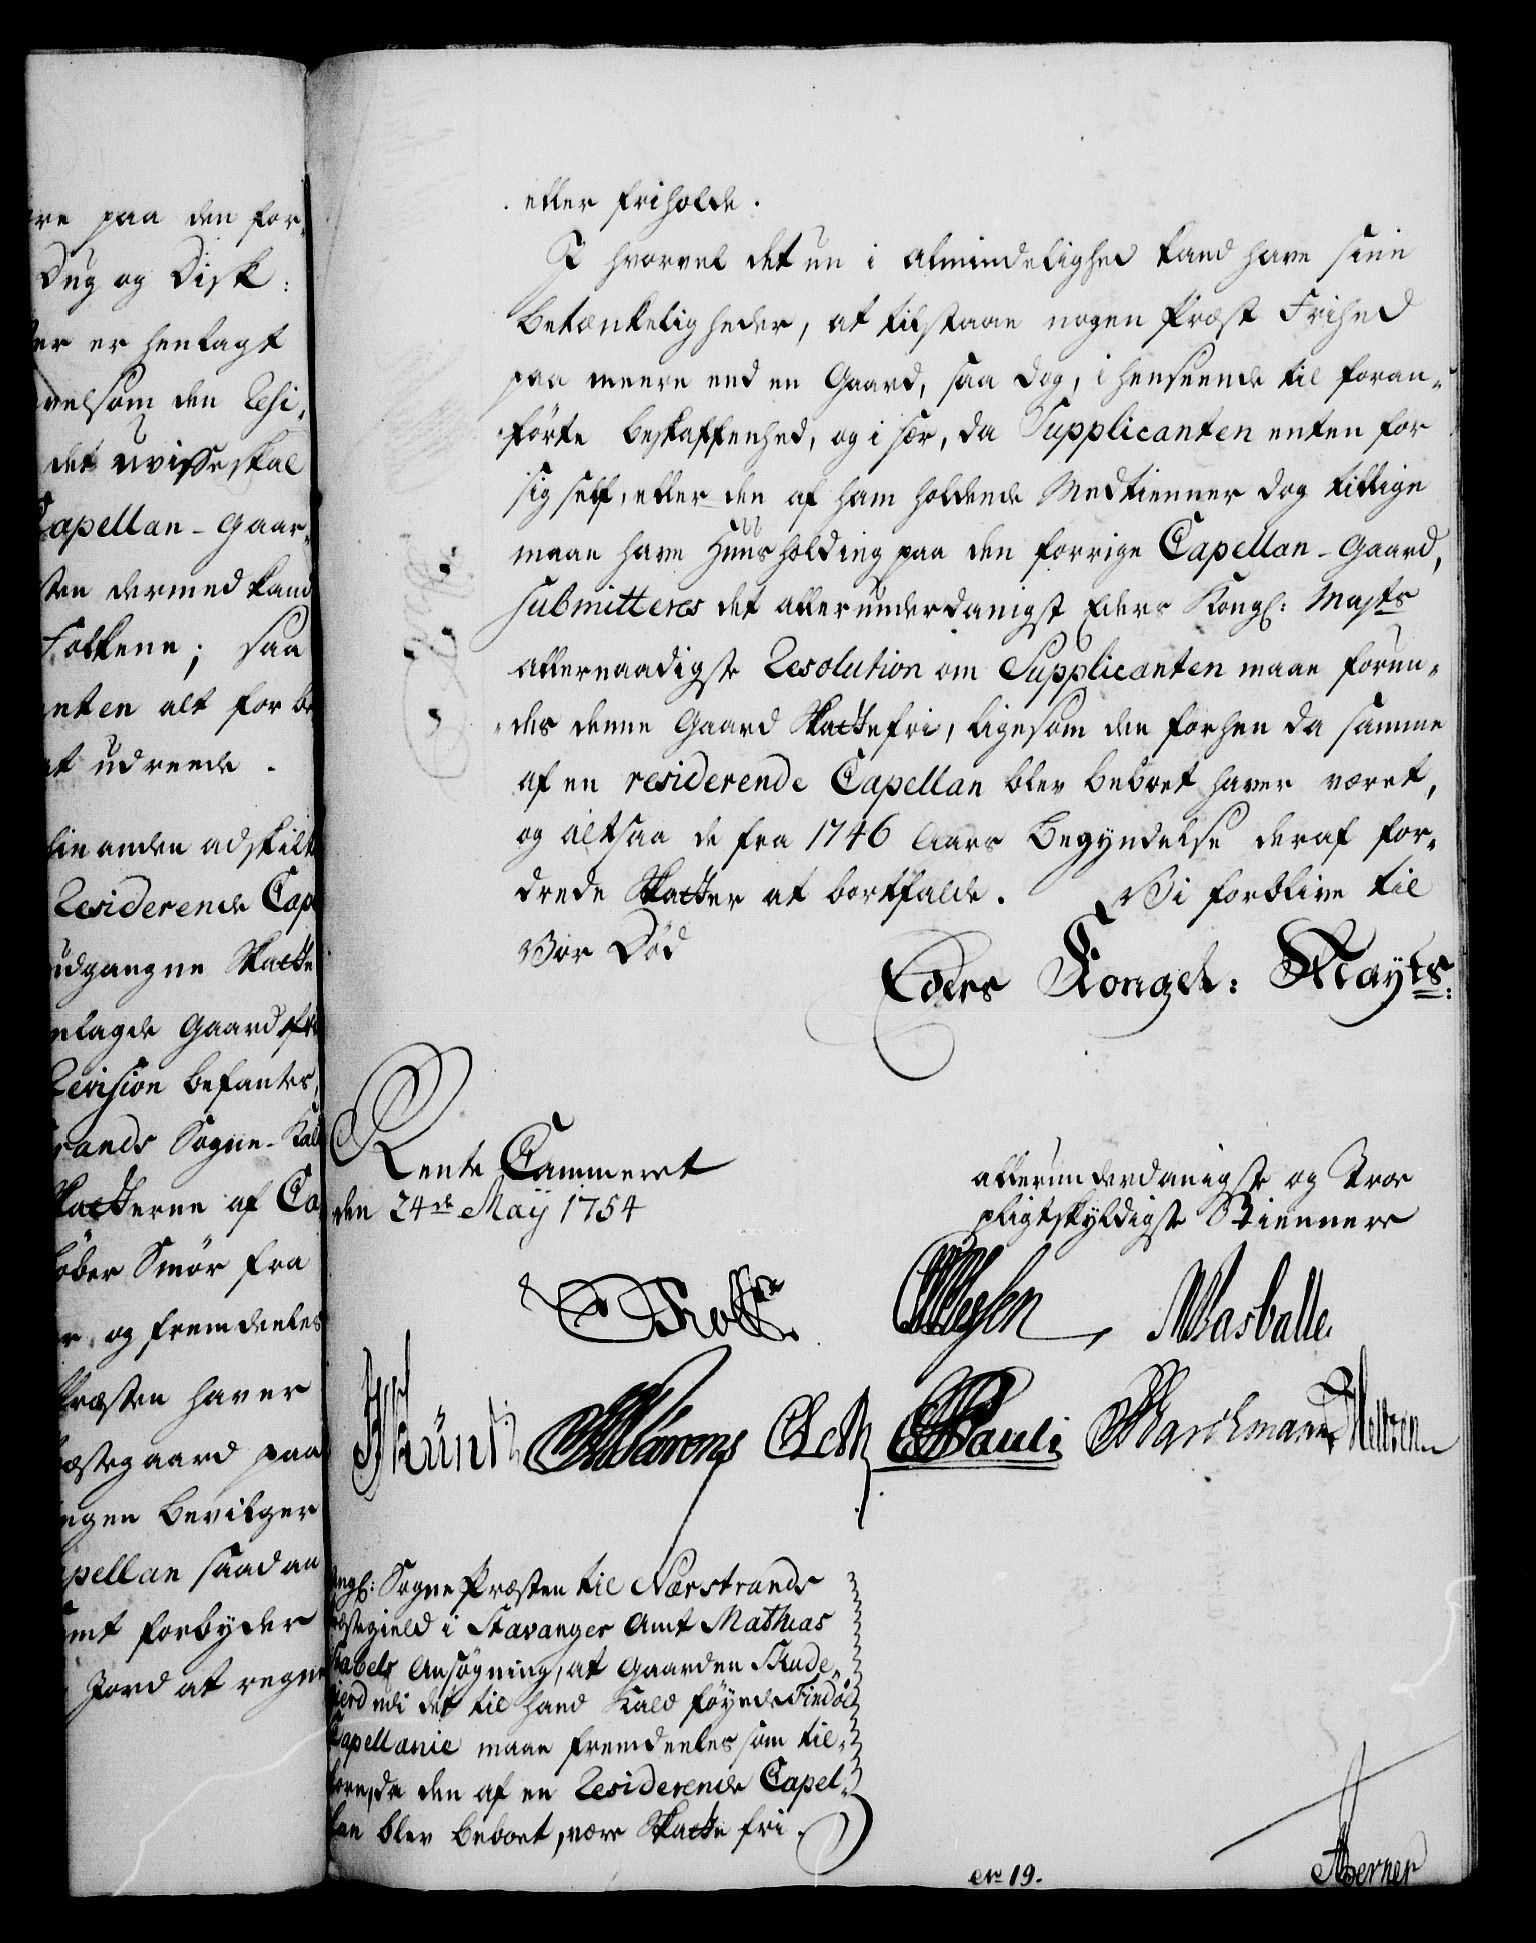 re paa den for-
Dug og Disk:
er er henlagt
velsom den Resi-
det uvisse skal
Capellan-Gaar-
ten dermed kand
Folkene; saa
nten alt for be
at udreede.
hin anden adskilt
Residerende Cap
udgangne Skatte
nlagde Gaard
Revision befantes,
rands Sogne-Kal
Skatterne af Ca
løber Smør fra
r, og fremdeeles
Præsten haver
æstegaard paa
ngen bevilger
apellan saadan
amt forbyder
Jord at regne
eller friholde.
I hvorvel det nu i almindelighed kand have sine
Betænkeligheder, at tilstaae nogen Præst Frihed
paa meere end en Gaard, saa dog, i henseende til foran-
førte beskaffenhed, og i sær, da Supplicanten enten for
sig self, eller den af ham holdende Medtienner dog tillige
maae have Huusholding paa den forrige Capellan-Gaard,
submitteres det allerunderdanigst Eders Kongl: Majts
allernaadigste Resolution om Supplicanten maae forun-
des denne Gaard Skattefri, ligesom den forhen da samme
af en residerende Capellan blev beboet haver været,
og altsaa de fra 1746 Aars Begyndelse deraf for-
drede Skatter at bortfalde. Vi forblive til
Vor Død
Eders Kongel: Mayts:
Rente Cammeret
den 24de Maij 1754
allerunderdanigste og Troe
pligtskyldigste Tiennere
Holst
Wasballe.
Pauli
Kongl: Sogne Præsten til Nærstrands
Præstegield i Stavanger Amt Mathias
Ansøgning, at Gaarden Skude-
udi det til hans Kald føyede Findøe
Capellanie maae fremdeeles som til-
forn, da den af en Residerende Capel-
lan blev beboet, være Skatte fri.
No 19.